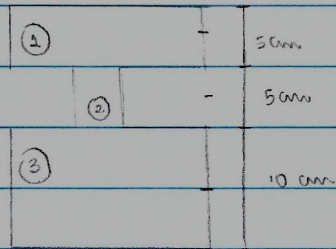 ① 5 cm
② 5 cm
③ 10 cm